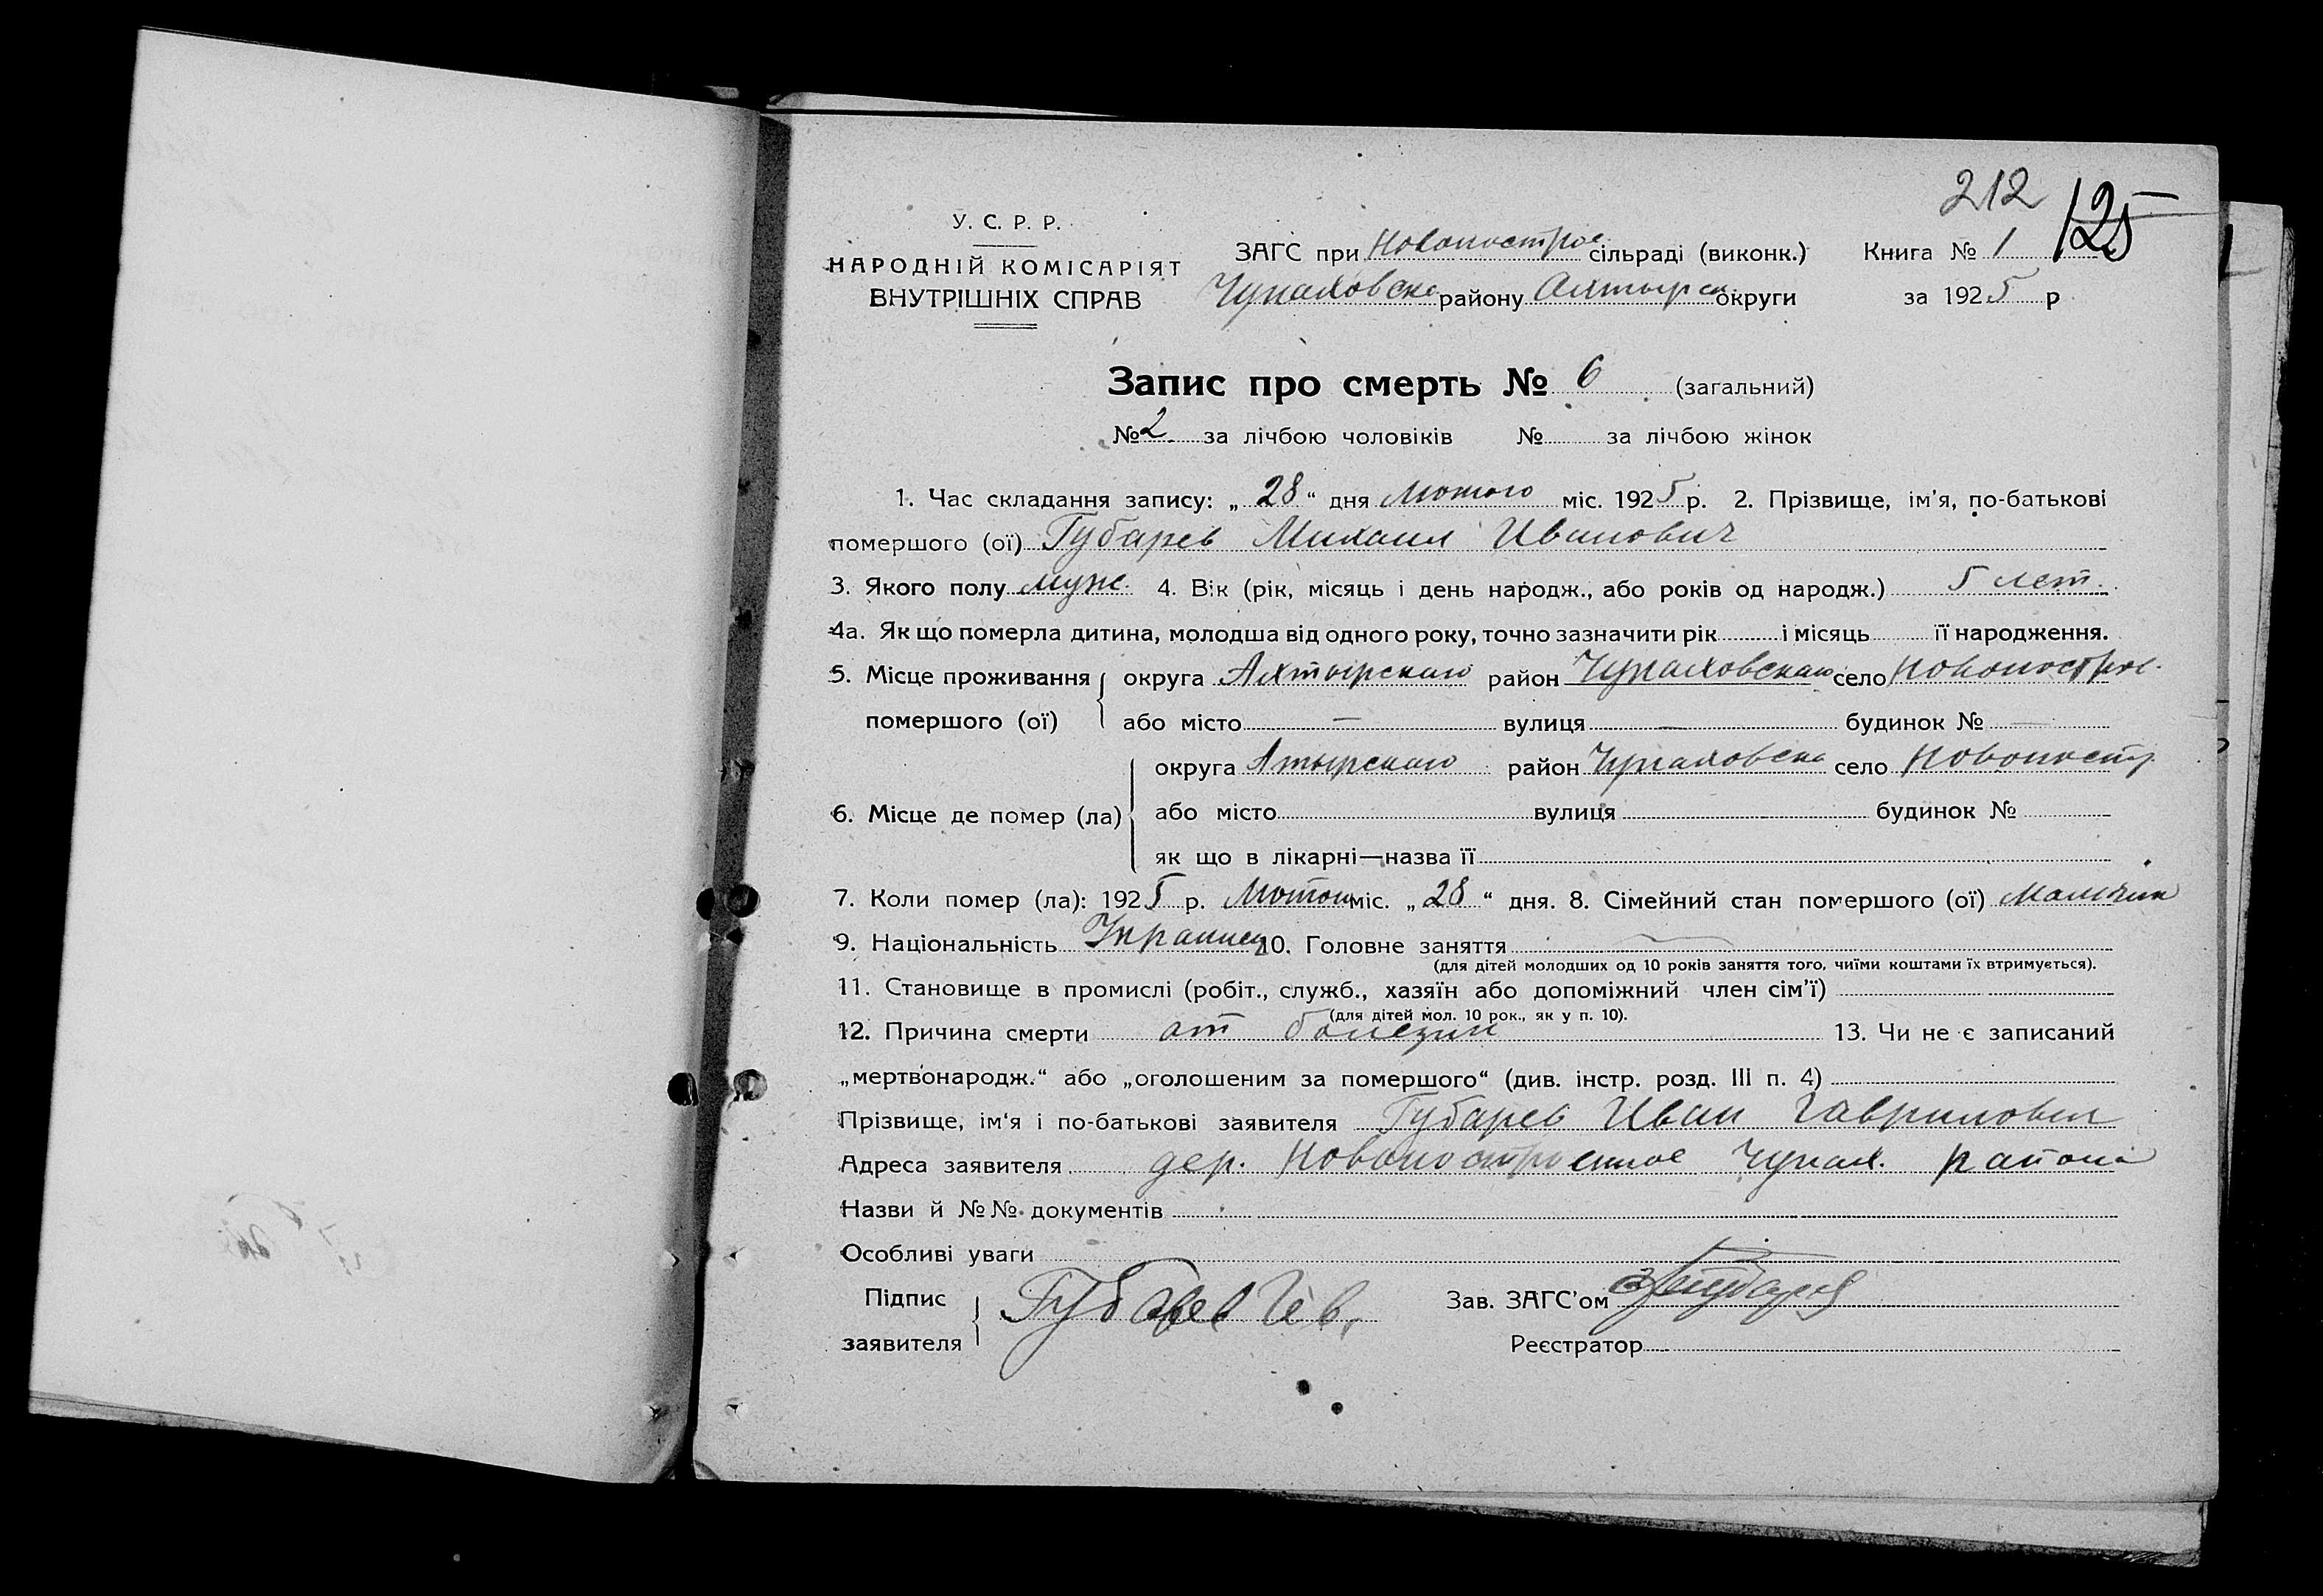 212 125
У. С. Р. Р.
НАРОДНІЙ КОМІСАРІЯТ
ВНУТРІШНІХ СПРАВ
ЗАГС при Новопострое сільраді (виконк.) Книга № 1
Чупаховско району Ахтырск округи за 1925 р
Запис про смерть № 6 (загальний)
№ 2 за лічбою чоловіків № за лічбою жінок
1. Час складання запису: „ 28 “ дня Лютого міс. 1925 р. 2. Прізвище, ім'я, по-батькові
помершого (ої) Губарев Михаил Иванович
3. Якого полу муж. 4. Вік (рік, місяць і день народж., або років од народж.) 5 лет.
4а. Як що померла дитина, молодша від одного року, точно зазначити рік і місяць її народження.
5. Місце проживання округа Ахтырскаго район Чупаховскаго село Новопострое.
помершого (ої) або місто — вулиця — будинок № —
округа Атырскаго район Чупаховско село Новопостр
6. Місце де помер (ла) або місто вулиця будинок №
як що в лікарні—назва її
7. Коли помер (ла): 1925 р. Лютого міс. „ 28 “ дня. 8. Сімейний стан помершого (ої) мальчик
9. Національність Украинец 10. Головне заняття
(для дітей молодших од 10 років заняття того, чиїми коштами їх втримується).
11. Становище в промислі (робіт., служб., хазяїн або допоміжний член сім'ї)
(для дітей мол. 10 рок., як у п. 10).
12. Причина смерти от болезни 13. Чи не є записаний
„мертвонародж.“ або „оголошеним за помершого“ (див. інстр. розд. III п. 4)
Прізвище, ім'я і по-батькові заявителя Губарев Иван Гаврилович
Адреса заявителя дер. Новопостроенное Чупах. района
Назви й №№ документів
Особливі уваги
Підпис
заявителя Губарев Ив.
Зав. ЗАГС'ом
Реєстратор